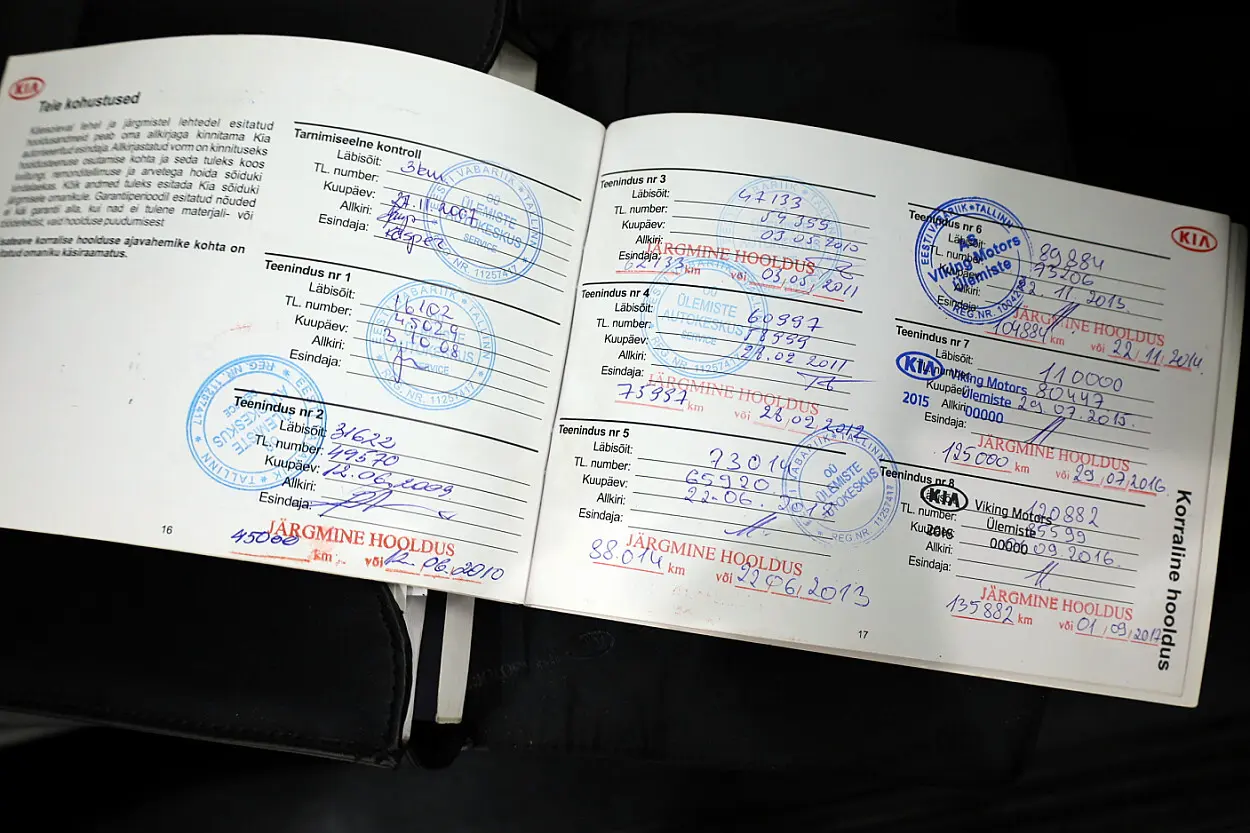 KIA
Teie kohustused
Käesoleval lehel ja järgmistel lehtedel esitatud
hooldusandmeid peab oma allkirjaga kinnitama Kia
autoriseeritud esindaja. Allkirjastatud vorm on kinnituseks
hooldusteenuse osutamise kohta ja seda tuleks koos
remonditellimuse ja arvetega hoida sõiduki
Kõik andmed tuleks esitada Kia sõiduki
järgmisele omanikule. Garantiiperioodil esitatud nõuded
ei käi garantii alla, kui nad ei tulene materjali- või
vaid hoolduse puudumisest
korralise hoolduse ajavahemike kohta on
omaniku käsiraamatus.
Tarnimiseelne kontroll
Läbisõit: 3km
TL. number:
Kuupäev: 2007
Allkiri:
Esindaja: Kasper
EESTI VABARIIK * TALLINN * REG. NR. 11257417
OÜ
ÜLEMISTE
AUTOKESKUS
SERVICE
Teenindus nr 1
Läbisõit: 16102
TL. number: 45029
Kuupäev: 3.10.08
Allkiri:
Esindaja:
Teenindus nr 2
Läbisõit: 31622
TL. number: 49570
Kuupäev: 12.06.2009
Allkiri:
Esindaja:
JÄRGMINE HOOLDUS
45000 km või 12.06.2010
16
Teenindus nr 3
Läbisõit: 47133
TL. number: 54359
Kuupäev: 03.05.2010
Allkiri:
Esindaja:
JÄRGMINE HOOLDUS
62133 km või 03.05.2011
Teenindus nr 4
Läbisõit: 60997
TL. number: 58999
Kuupäev: 28.02 2011
Allkiri:
Esindaja:
OÜ
ÜLEMISTE
AUTOKESKUS
SERVICE
JÄRGMINE HOOLDUS
75997 km või 28.02.2012
Teenindus nr 5
Läbisõit: 73014
TL. number: 65920
Kuupäev: 22.06.2012
Allkiri:
Esindaja:
OÜ
ÜLEMISTE
AUTOKESKUS
JÄRGMINE HOOLDUS
88.014 km või 22 06 2013
17
KIA
Teenindus nr 6
Läbisõit: 89884
TL. number: 75106
Kuupäev: 22.11.2013
Allkiri:
Esindaja:
EESTI VABARIIK * TALLINN
AS
Viking Motors
Ülemiste
JÄRGMINE HOOLDUS
104884 km või 22.11.2014.
Teenindus nr 7
Läbisõit: 110000
TL. number: 80447
Kuupäev: 29.07.2015.
Allkiri:
Esindaja:
KIA Viking Motors
Ülemiste
2015 00000
JÄRGMINE HOOLDUS
125000 km või 29.07.2016.
Teenindus nr 8
Läbisõit: 120882
TL. number: 85599
Kuupäev: 09 2016.
Allkiri:
Esindaja:
KIA Viking Motors
Ülemiste
00000
JÄRGMINE HOOLDUS
135882 km või 01.09.2017
Korraline hooldus